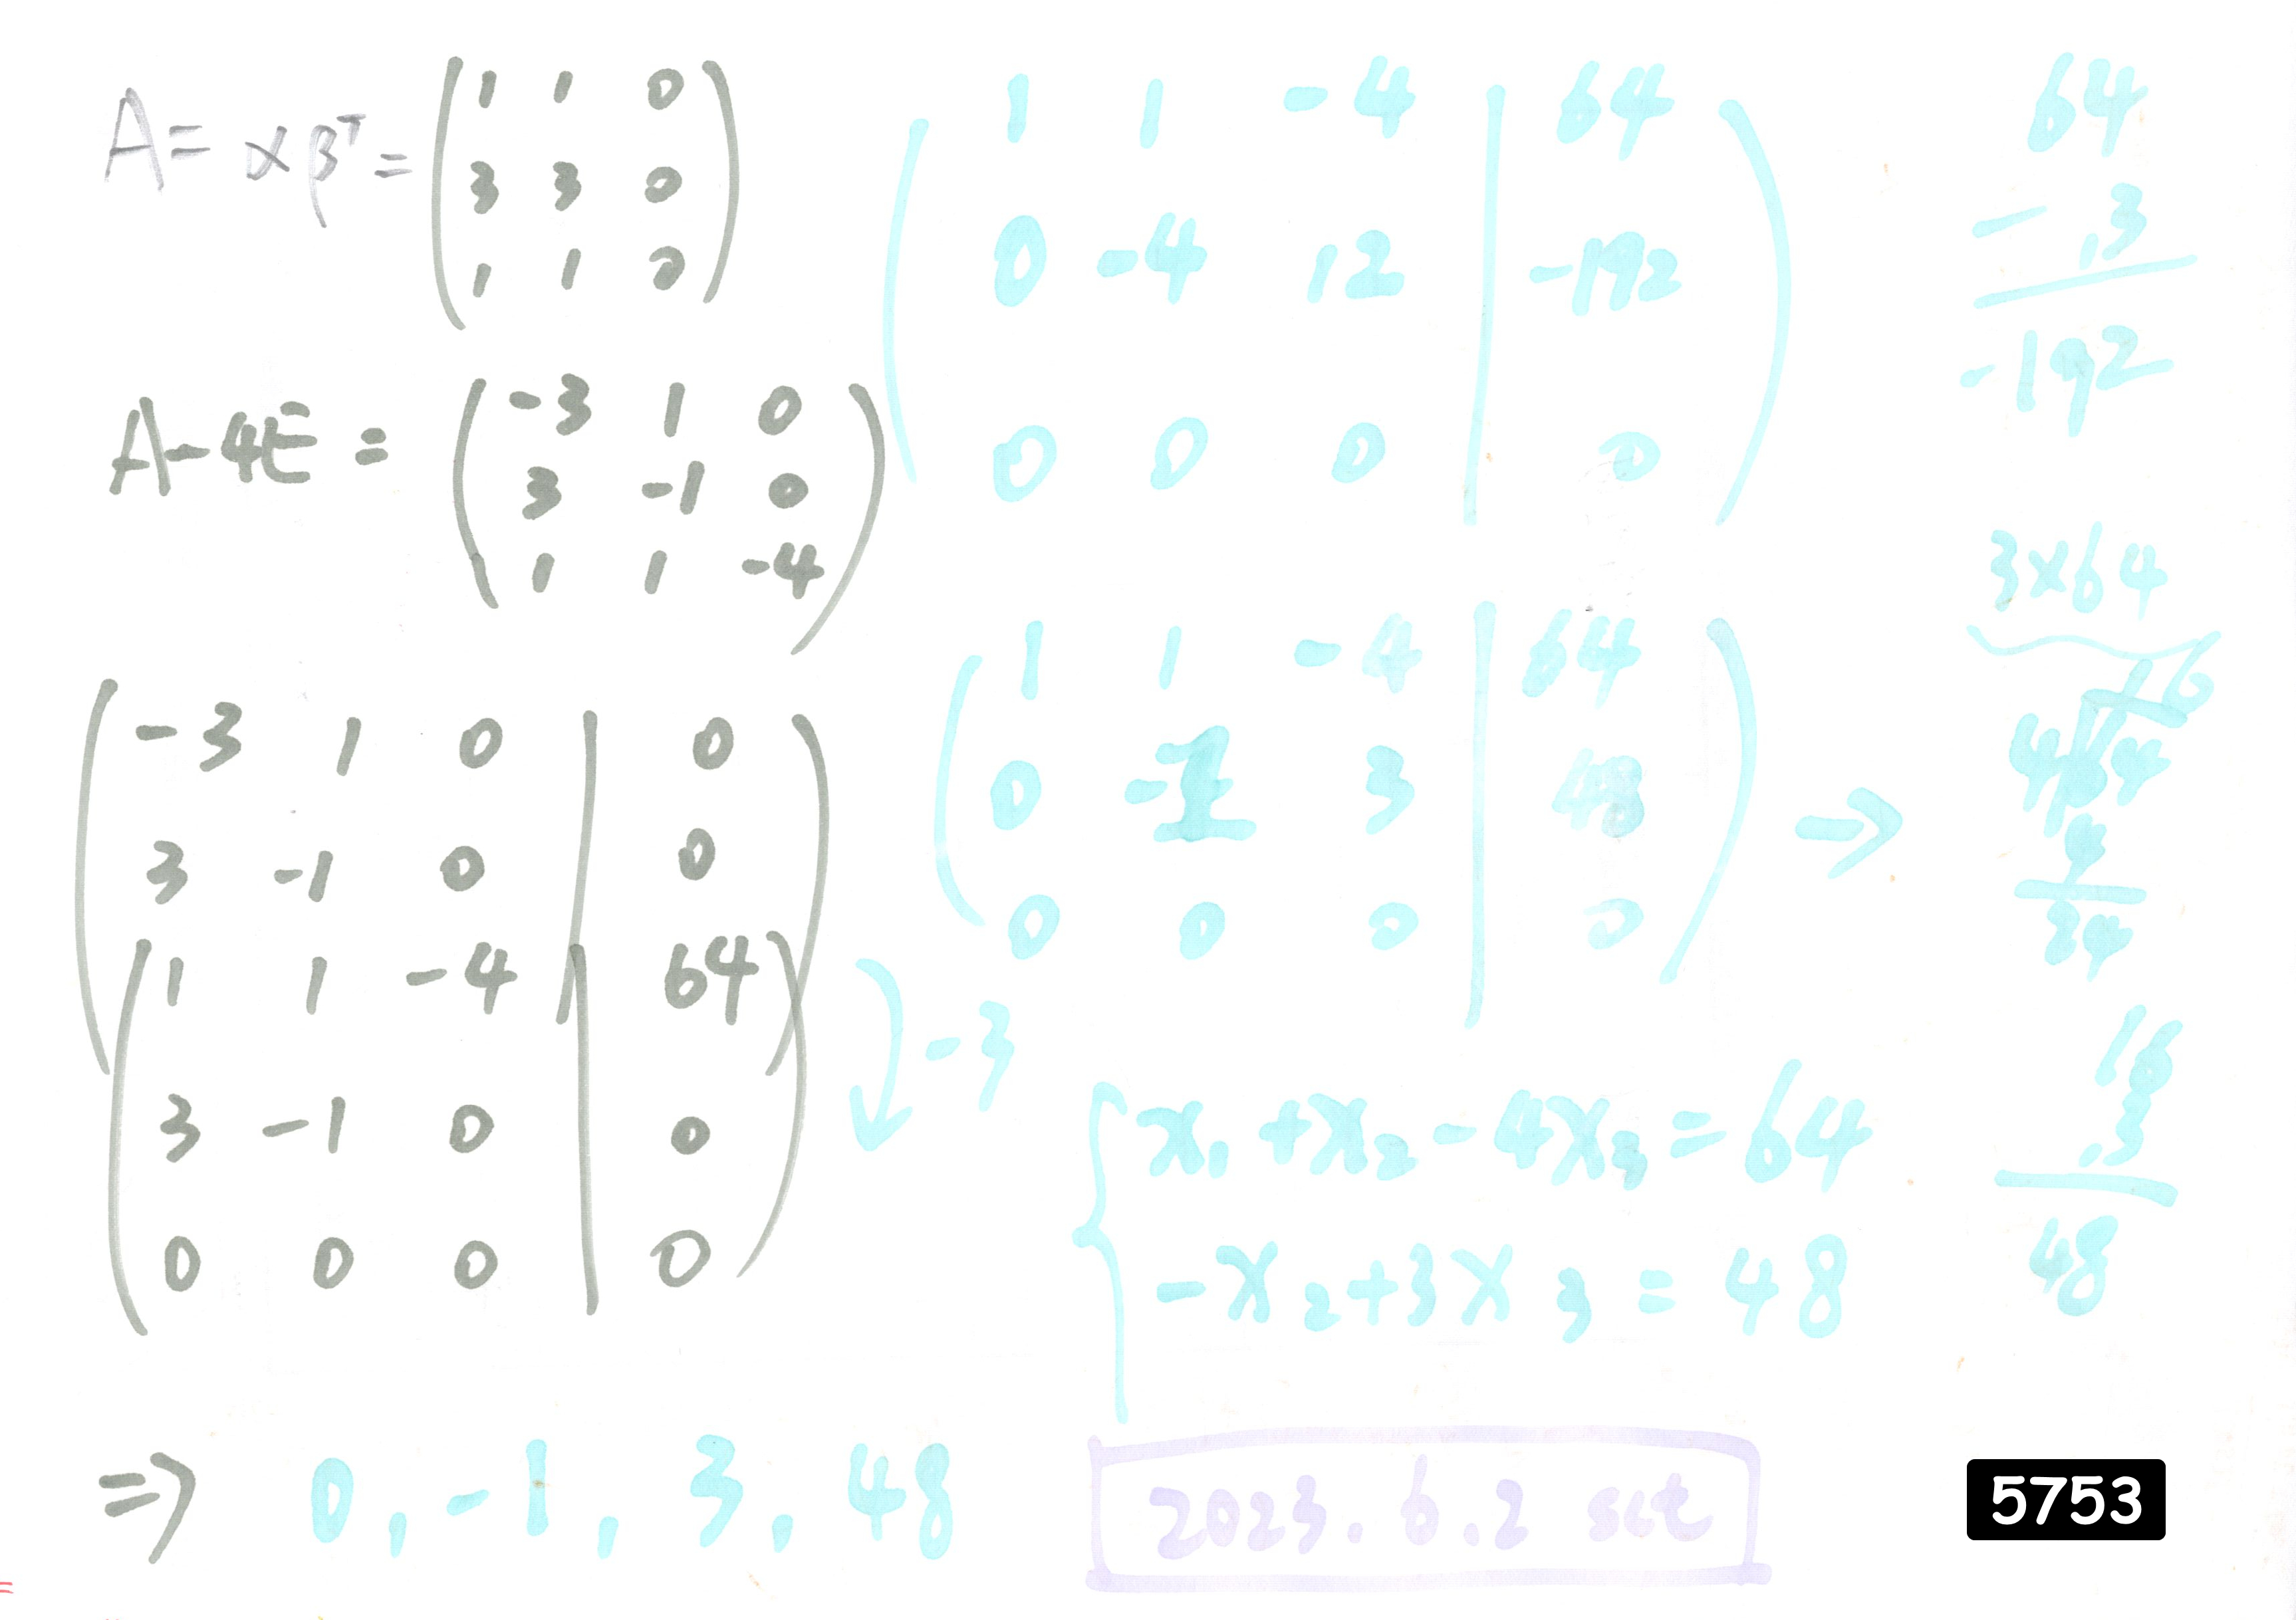 A = αβᵀ = ( 1 1 0
3 3 0
1 1 0 )
A-4E = ( -3 1 0
3 -1 0
1 1 -4 )
( -3 1 0 | 0
3 -1 0 | 0
1 1 -4 | 64 )
3 -1 0 | 0
0 0 0 | 0 )
-3
⇒ 0, -1, 3, 48
( 1 1 -4 | 64
0 -4 12 | -192
0 0 0 | 0 )
( 1 1 -4 | 64
0 -1 3 | 48
0 0 0 | 0 ) →
{ x₁ + x₂ - 4x₃ = 64
-x₂ + 3x₃ = 48
2023.6.2 sct
64
- 3
-192
3x64
16
4 64
4
24
16
3
48
5753